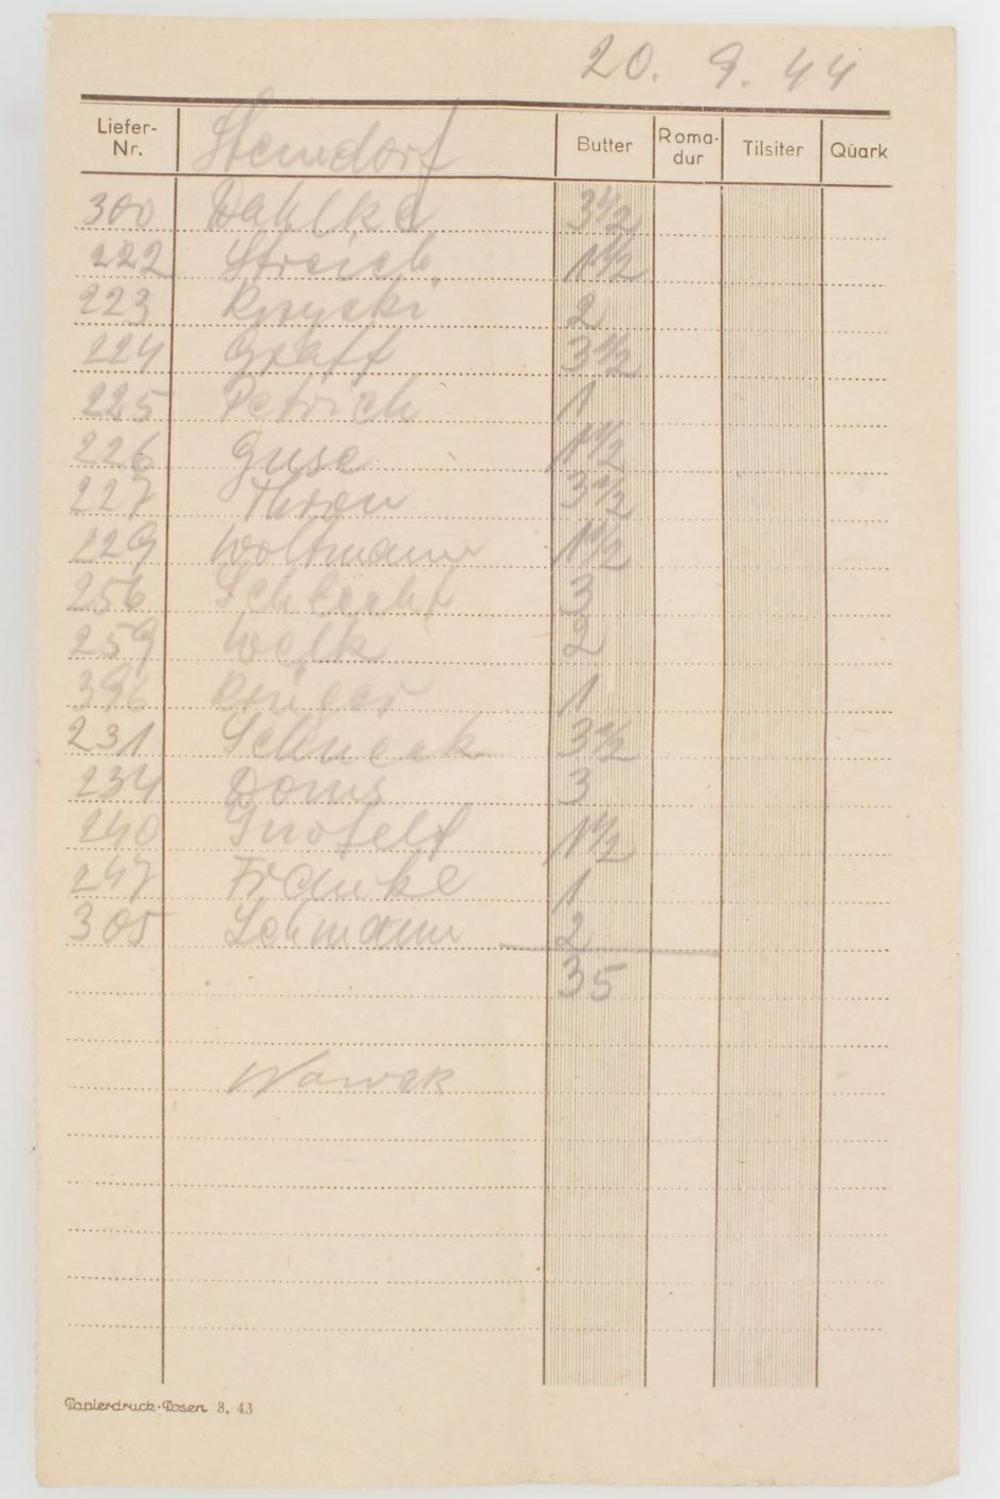 20. 9. 44
Liefer-Nr. Steindorf Butter Roma-dur Tilsiter Quark
300 Dahlke 3 1/2
222 Streich 1 1/2
223 2
224 Graff 3 1/2
225 Petrich 1
226 Guse 1 1/2
227 Thron 3 1/2
229 Woltmann 1 1/2
256 Schlecht 3
259 Welk 2
396 Krüger 1
231 Schneck 3 1/2
234 Doms 3
240 1 1/2
247 Franke 1
305 Lehmann 2
35
Nowak
Papierdruck-Posen 3. 43